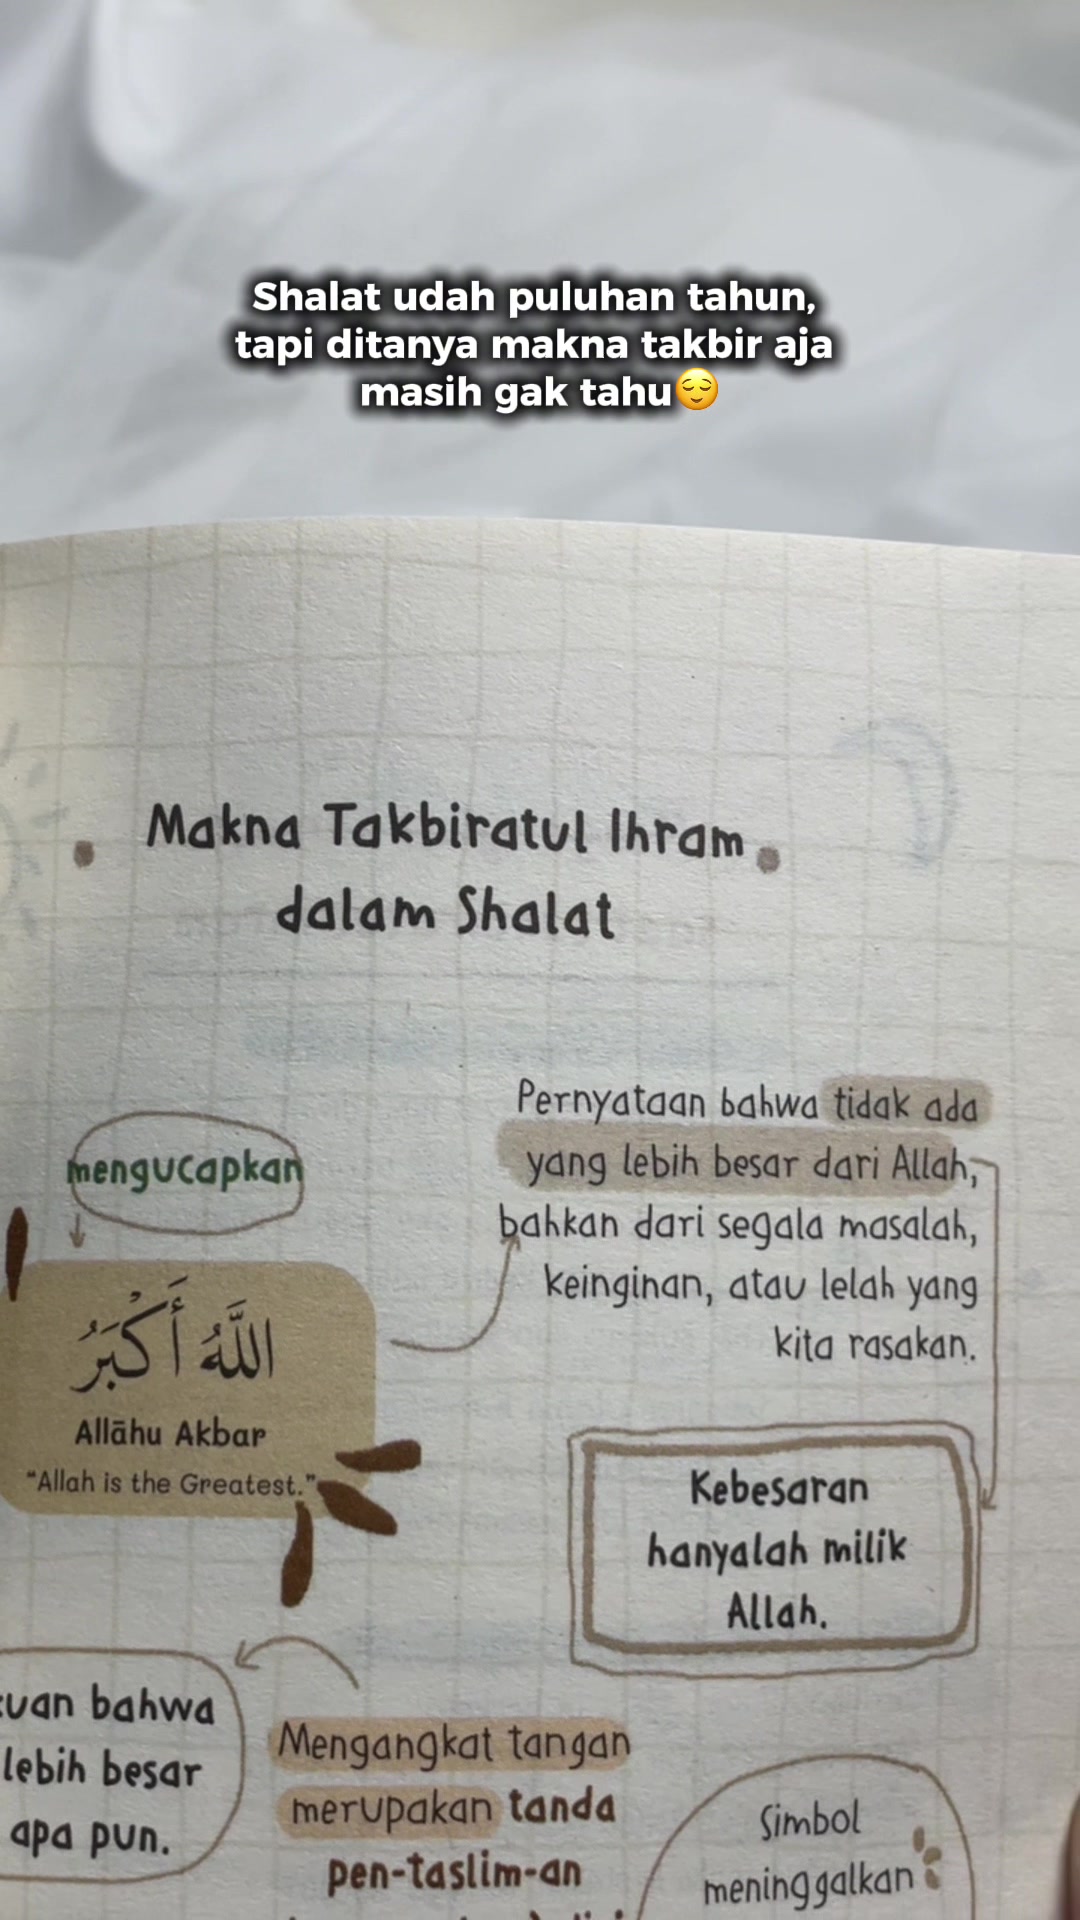 Shalat udah puluhan tahun,
tapi ditanya makna takbir aja
masih gak tahu😌
Makna Takbiratul Ihram
dalam Shalat
mengucapkan
اللَّهُ أَكْبَرُ
Allāhu Akbar
"Allah is the Greatest."
Pernyataan bahwa tidak ada
yang lebih besar dari Allah,
bahkan dari segala masalah,
keinginan, atau lelah yang
kita rasakan.
Kebesaran
hanyalah milik
Allah.
bahwa
lebih besar
apa pun.
Mengangkat tangan
merupakan tanda
pen-taslim-an
Simbol
meninggalkan